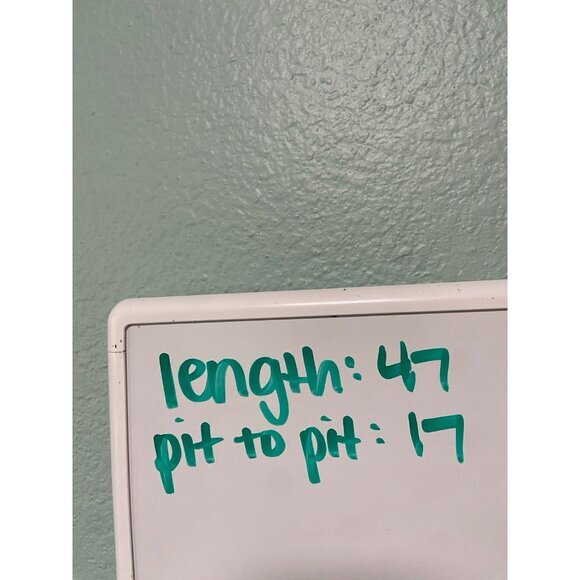 length: 47
pit to pit: 17